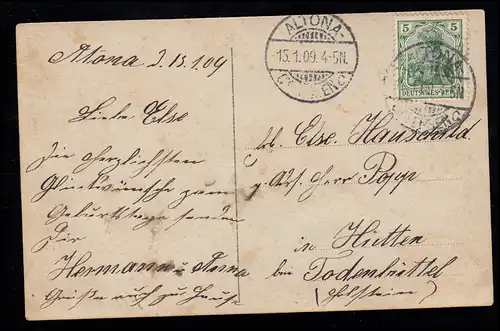 Altona d. 15.1.09
Liebe Else
Die herzlichsten
Glückwünsche zum
Geburtstage senden
Dir
Hermann u. Anna
Grüße auch zu Hause
ALTONA-
15.1.09.4-5N.
5 5
DEUTSCHES REICH
Frl. Else Hauschild
p. Adr. Herr Popp
in Hütten
bei Todenbüttel
(Holstein)